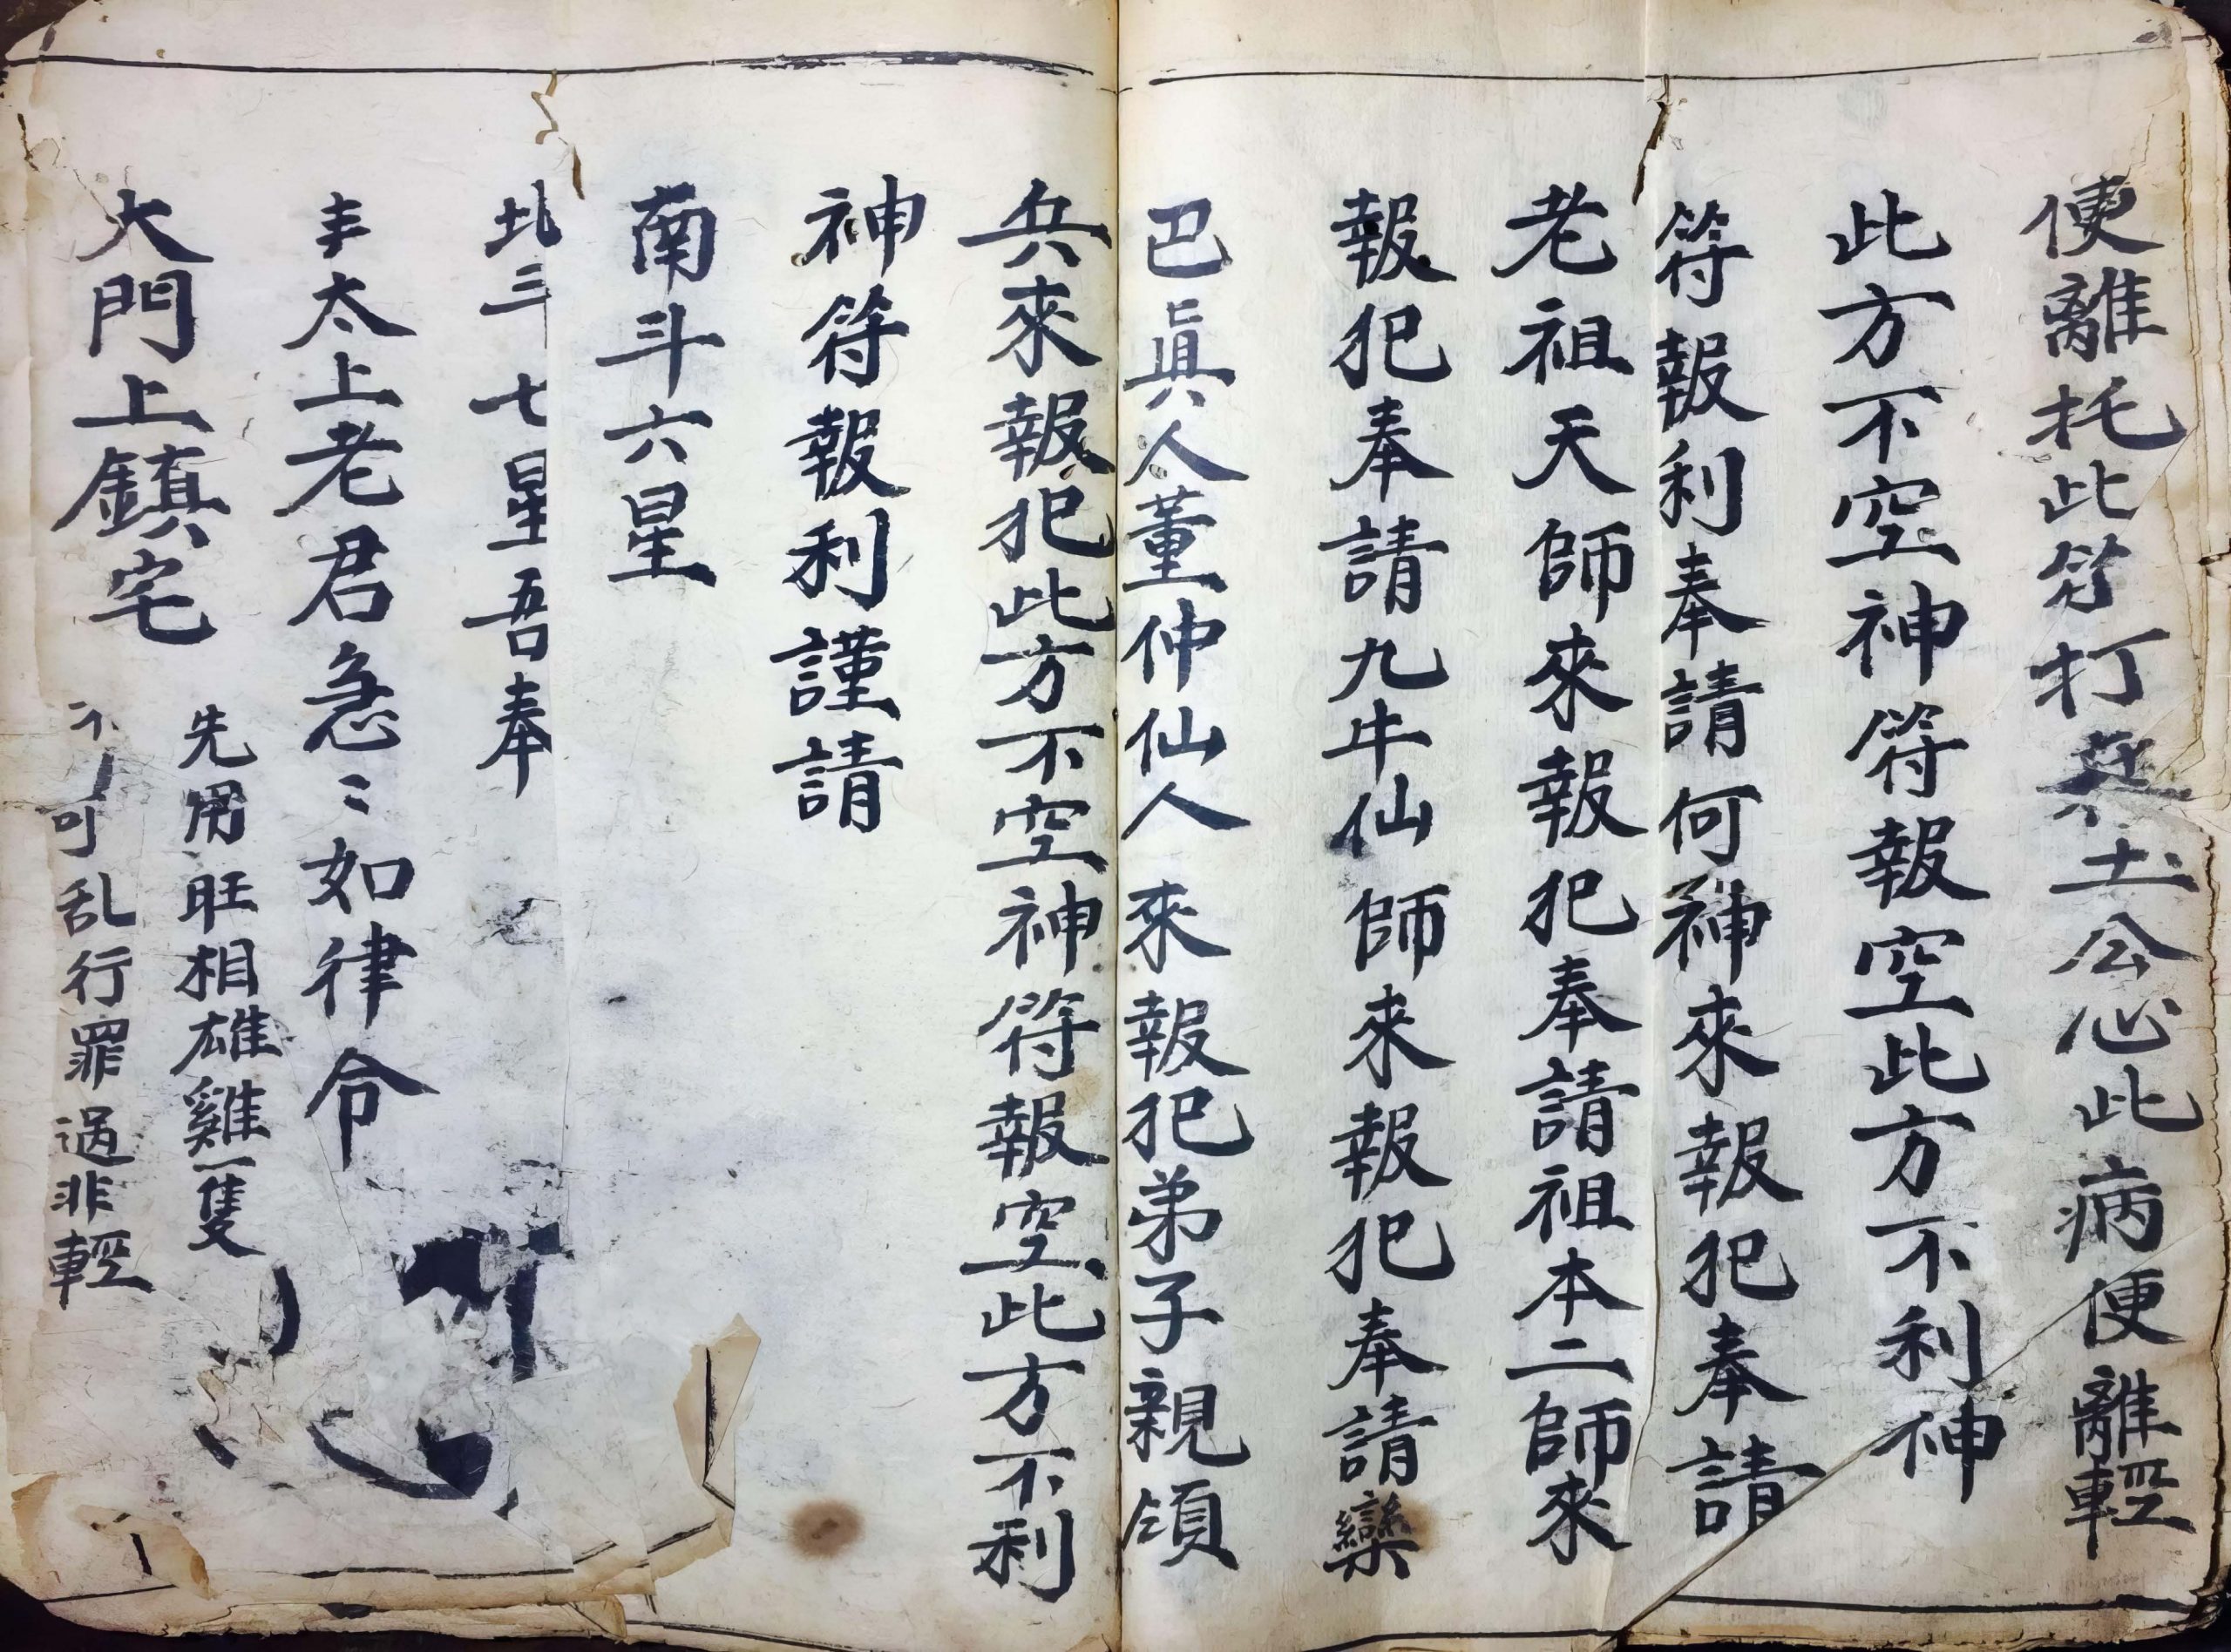 便離托此符打土公心此病便離輕
此方不空神符報空此方不利神
符報利奉請何神來報犯奉請
老祖天師來報犯奉請祖本二師來
報犯奉請九牛仙師来報犯奉請欒
巴眞人董仲仙人來報犯弟子親領
兵來報犯此方不空神符報空此方不利
神符報利謹請
南斗六星
北七星吾奉
太上老君急〻如律令
大門上鎮宅
先用旺相雄雞一隻
不可乱行罪過非輕